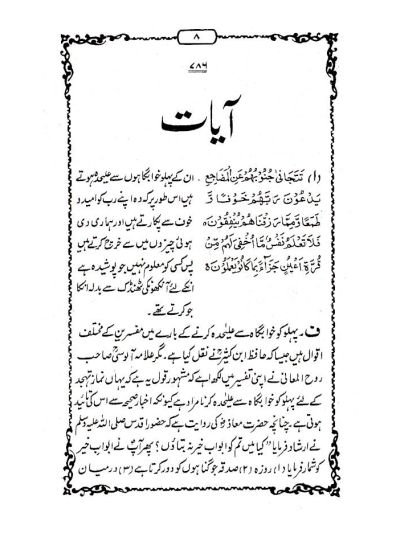 ۸
۷۸۶
آیات
(۱) تَتَجَافٰی جُنُوْبُهُمْ عَنِ الْمَضَاجِعِ
یَدْعُوْنَ رَبَّهُمْ خَوْفًا وَّ
طَمَعًا وَّمِمَّا رَزَقْنٰهُمْ یُنْفِقُوْنَ ○
فَلَا تَعْلَمُ نَفْسٌ مَّا اُخْفِیَ لَهُمْ مِّنْ
قُرَّةِ اَعْیُنٍ جَزَآءً بِمَا کَانُوْا یَعْمَلُوْنَ ○
ان کے پہلو خوابگاہوں سے علیحدہ ہوتے
ہیں اس طور کہ وہ اپنے رب کو امید و
خوف سے پکارتے ہیں اور ہماری دی
ہوئی چیزوں میں سے خرچ کرتے ہیں
پس کسی کو معلوم نہیں جو پوشیدہ ہے
انکے لئے آنکھونکی ٹھنڈک سے بدلہ انکا
جو کرتے تھے۔
ف۔ پہلو کو خوابگاہ سے علیحدہ کرنے کے بارے میں مفسرین کے مختلف
اقوال ہیں جیسا کہ حافظ ابن کثیرؒ نے نقل کیا ہے۔ مگر علامہ آلوسیؒ صاحب
روح المعانی نے اپنی تفسیر میں لکھا ہے کہ مشہور قول یہ ہے کہ یہاں نماز تہجد
کے لئے پہلو کو خوابگاہ سے علیحدہ کرنا مراد ہے کیونکہ اخبار صحیحہ سے اس کی تائید
ہوتی ہے چنانچہ حضرت معاذؓ کی روایت ہے کہ حضور اقدس صلی اللہ علیہ وسلم
نے ارشاد فرمایا "کیا میں تم کو ابواب خیر نہ بتاؤں؟ پھر آپؐ نے ابواب خیر
کو شمار فرمایا (۱) روزہ (۲) صدقہ جو گناہوں کو دور کرتا ہے (۳) درمیان